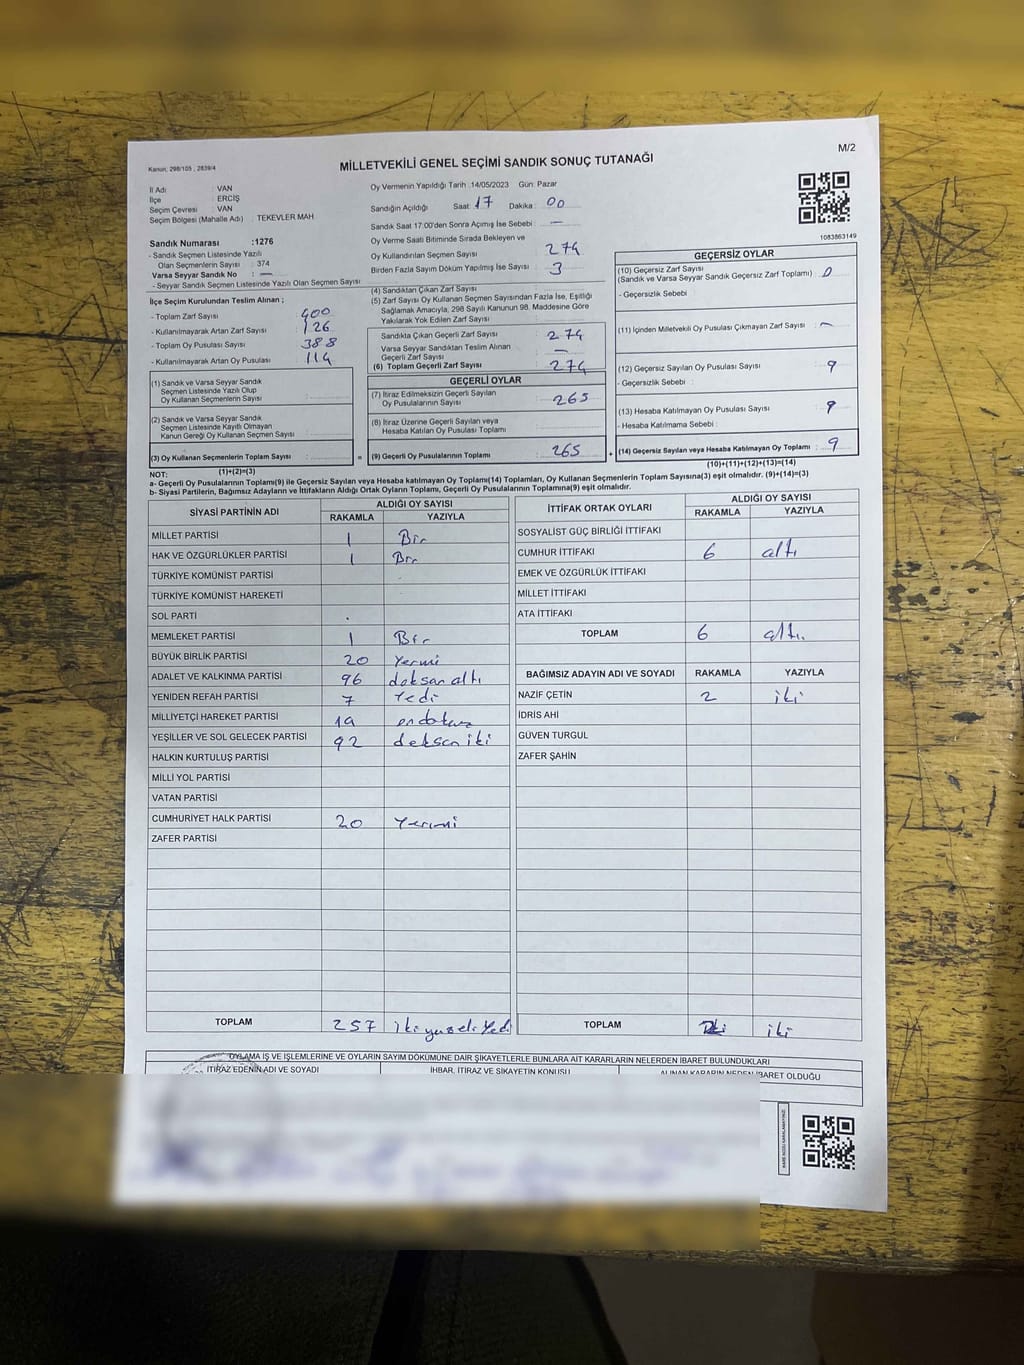 M/2
Kanun: 298/105 , 2839/4
MİLLETVEKİLİ GENEL SEÇİMİ SANDIK SONUÇ TUTANAĞI
İl Adı : VAN
İlçe : ERCİŞ
Seçim Çevresi : VAN
Seçim Bölgesi (Mahalle Adı) : TEKEVLER MAH
Sandık Numarası :1276
- Sandık Seçmen Listesinde Yazılı
Olan Seçmenlerin Sayısı : 374
Varsa Seyyar Sandık No : —
- Seyyar Sandık Seçmen Listesinde Yazılı Olan Seçmen Sayısı
Oy Vermenin Yapıldığı Tarih :14/05/2023 Gün: Pazar
Sandığın Açıldığı Saat: 17 Dakika: 00
Sandık Saat 17:00'den Sonra Açılmış İse Sebebi : —
Oy Verme Saati Bitiminde Sırada Bekleyen ve
Oy Kullandırılan Seçmen Sayısı : 274
Birden Fazla Sayım Döküm Yapılmış İse Sayısı : 3
1083863149
İlçe Seçim Kurulundan Teslim Alınan ;
- Toplam Zarf Sayısı : 400
- Kullanılmayarak Artan Zarf Sayısı : 126
- Toplam Oy Pusulası Sayısı : 388
- Kullanılmayarak Artan Oy Pusulası : 114
(1) Sandık ve Varsa Seyyar Sandık
Seçmen Listesinde Yazılı Olup
Oy Kullanan Seçmenlerin Sayısı :
(2) Sandık ve Varsa Seyyar Sandık
Seçmen Listesinde Kayıtlı Olmayan
Kanun Gereği Oy Kullanan Seçmen Sayısı :
(3) Oy Kullanan Seçmenlerin Toplam Sayısı :
(1)+(2)=(3)
(4) Sandıktan Çıkan Zarf Sayısı :
(5) Zarf Sayısı Oy Kullanan Seçmen Sayısından Fazla İse, Eşitliği
Sağlamak Amacıyla, 298 Sayılı Kanunun 98. Maddesine Göre
Yakılarak Yok Edilen Zarf Sayısı :
Sandıkta Çıkan Geçerli Zarf Sayısı : 274
Varsa Seyyar Sandıktan Teslim Alınan
Geçerli Zarf Sayısı : —
(6) Toplam Geçerli Zarf Sayısı : 274
GEÇERLİ OYLAR
(7) İtiraz Edilmeksizin Geçerli Sayılan
Oy Pusulalarının Sayısı : 265
(8) İtiraz Üzerine Geçerli Sayılan veya
Hesaba Katılan Oy Pusulası Toplamı :
= (9) Geçerli Oy Pusulalarının Toplamı : 265 +
GEÇERSİZ OYLAR
(10) Geçersiz Zarf Sayısı
(Sandık ve Varsa Seyyar Sandık Geçersiz Zarf Toplamı) : 0
- Geçersizlik Sebebi :
(11) İçinden Milletvekili Oy Pusulası Çıkmayan Zarf Sayısı : —
(12) Geçersiz Sayılan Oy Pusulası Sayısı : 9
- Geçersizlik Sebebi :
(13) Hesaba Katılmayan Oy Pusulası Sayısı : 9
- Hesaba Katılmama Sebebi :
(14) Geçersiz Sayılan veya Hesaba Katılmayan Oy Toplamı : 9
(10)+(11)+(12)+(13)=(14)
NOT:
a- Geçerli Oy Pusulalarının Toplamı(9) ile Geçersiz Sayılan veya Hesaba katılmayan Oy Toplamı(14) Toplamları, Oy Kullanan Seçmenlerin Toplam Sayısına(3) eşit olmalıdır. (9)+(14)=(3)
b- Siyasi Partilerin, Bağımsız Adayların ve İttifakların Aldığı Ortak Oyların Toplamı, Geçerli Oy Pusulalarının Toplamına(9) eşit olmalıdır.
SİYASİ PARTİNİN ADI
ALDIĞI OY SAYISI
RAKAMLA YAZIYLA
MİLLET PARTİSİ 1 Bir
HAK VE ÖZGÜRLÜKLER PARTİSİ 1 Bir
TÜRKİYE KOMÜNİST PARTİSİ
TÜRKİYE KOMÜNİST HAREKETİ
SOL PARTİ
MEMLEKET PARTİSİ 1 Bir
BÜYÜK BİRLİK PARTİSİ 20 Yermi
ADALET VE KALKINMA PARTİSİ 96 doksan altı
YENİDEN REFAH PARTİSİ 7 Yedi
MİLLİYETÇİ HAREKET PARTİSİ 19 ondokuz
YEŞİLLER VE SOL GELECEK PARTİSİ 92 doksan iki
HALKIN KURTULUŞ PARTİSİ
MİLLİ YOL PARTİSİ
VATAN PARTİSİ
CUMHURİYET HALK PARTİSİ 20 Yermi
ZAFER PARTİSİ
TOPLAM 257 iki yuz eli Yedi
İTTİFAK ORTAK OYLARI
ALDIĞI OY SAYISI
RAKAMLA YAZIYLA
SOSYALİST GÜÇ BİRLİĞİ İTTİFAKI
CUMHUR İTTİFAKI 6 altı
EMEK VE ÖZGÜRLÜK İTTİFAKI
MİLLET İTTİFAKI
ATA İTTİFAKI
TOPLAM 6 altı.
BAĞIMSIZ ADAYIN ADI VE SOYADI RAKAMLA YAZIYLA
NAZİF ÇETİN 2 iki
İDRİS AHİ
GÜVEN TURGUL
ZAFER ŞAHİN
TOPLAM iki
OYLAMA İŞ VE İŞLEMLERİNE VE OYLARIN SAYIM DÖKÜMÜNE DAİR ŞİKAYETLERLE BUNLARA AİT KARARLARIN NELERDEN İBARET BULUNDUKLARI
İTİRAZ EDENİN ADI VE SOYADI
İHBAR, İTİRAZ VE ŞİKAYETİN KONUSU
ALINAN KARARIN NEDEN İBARET OLDUĞU